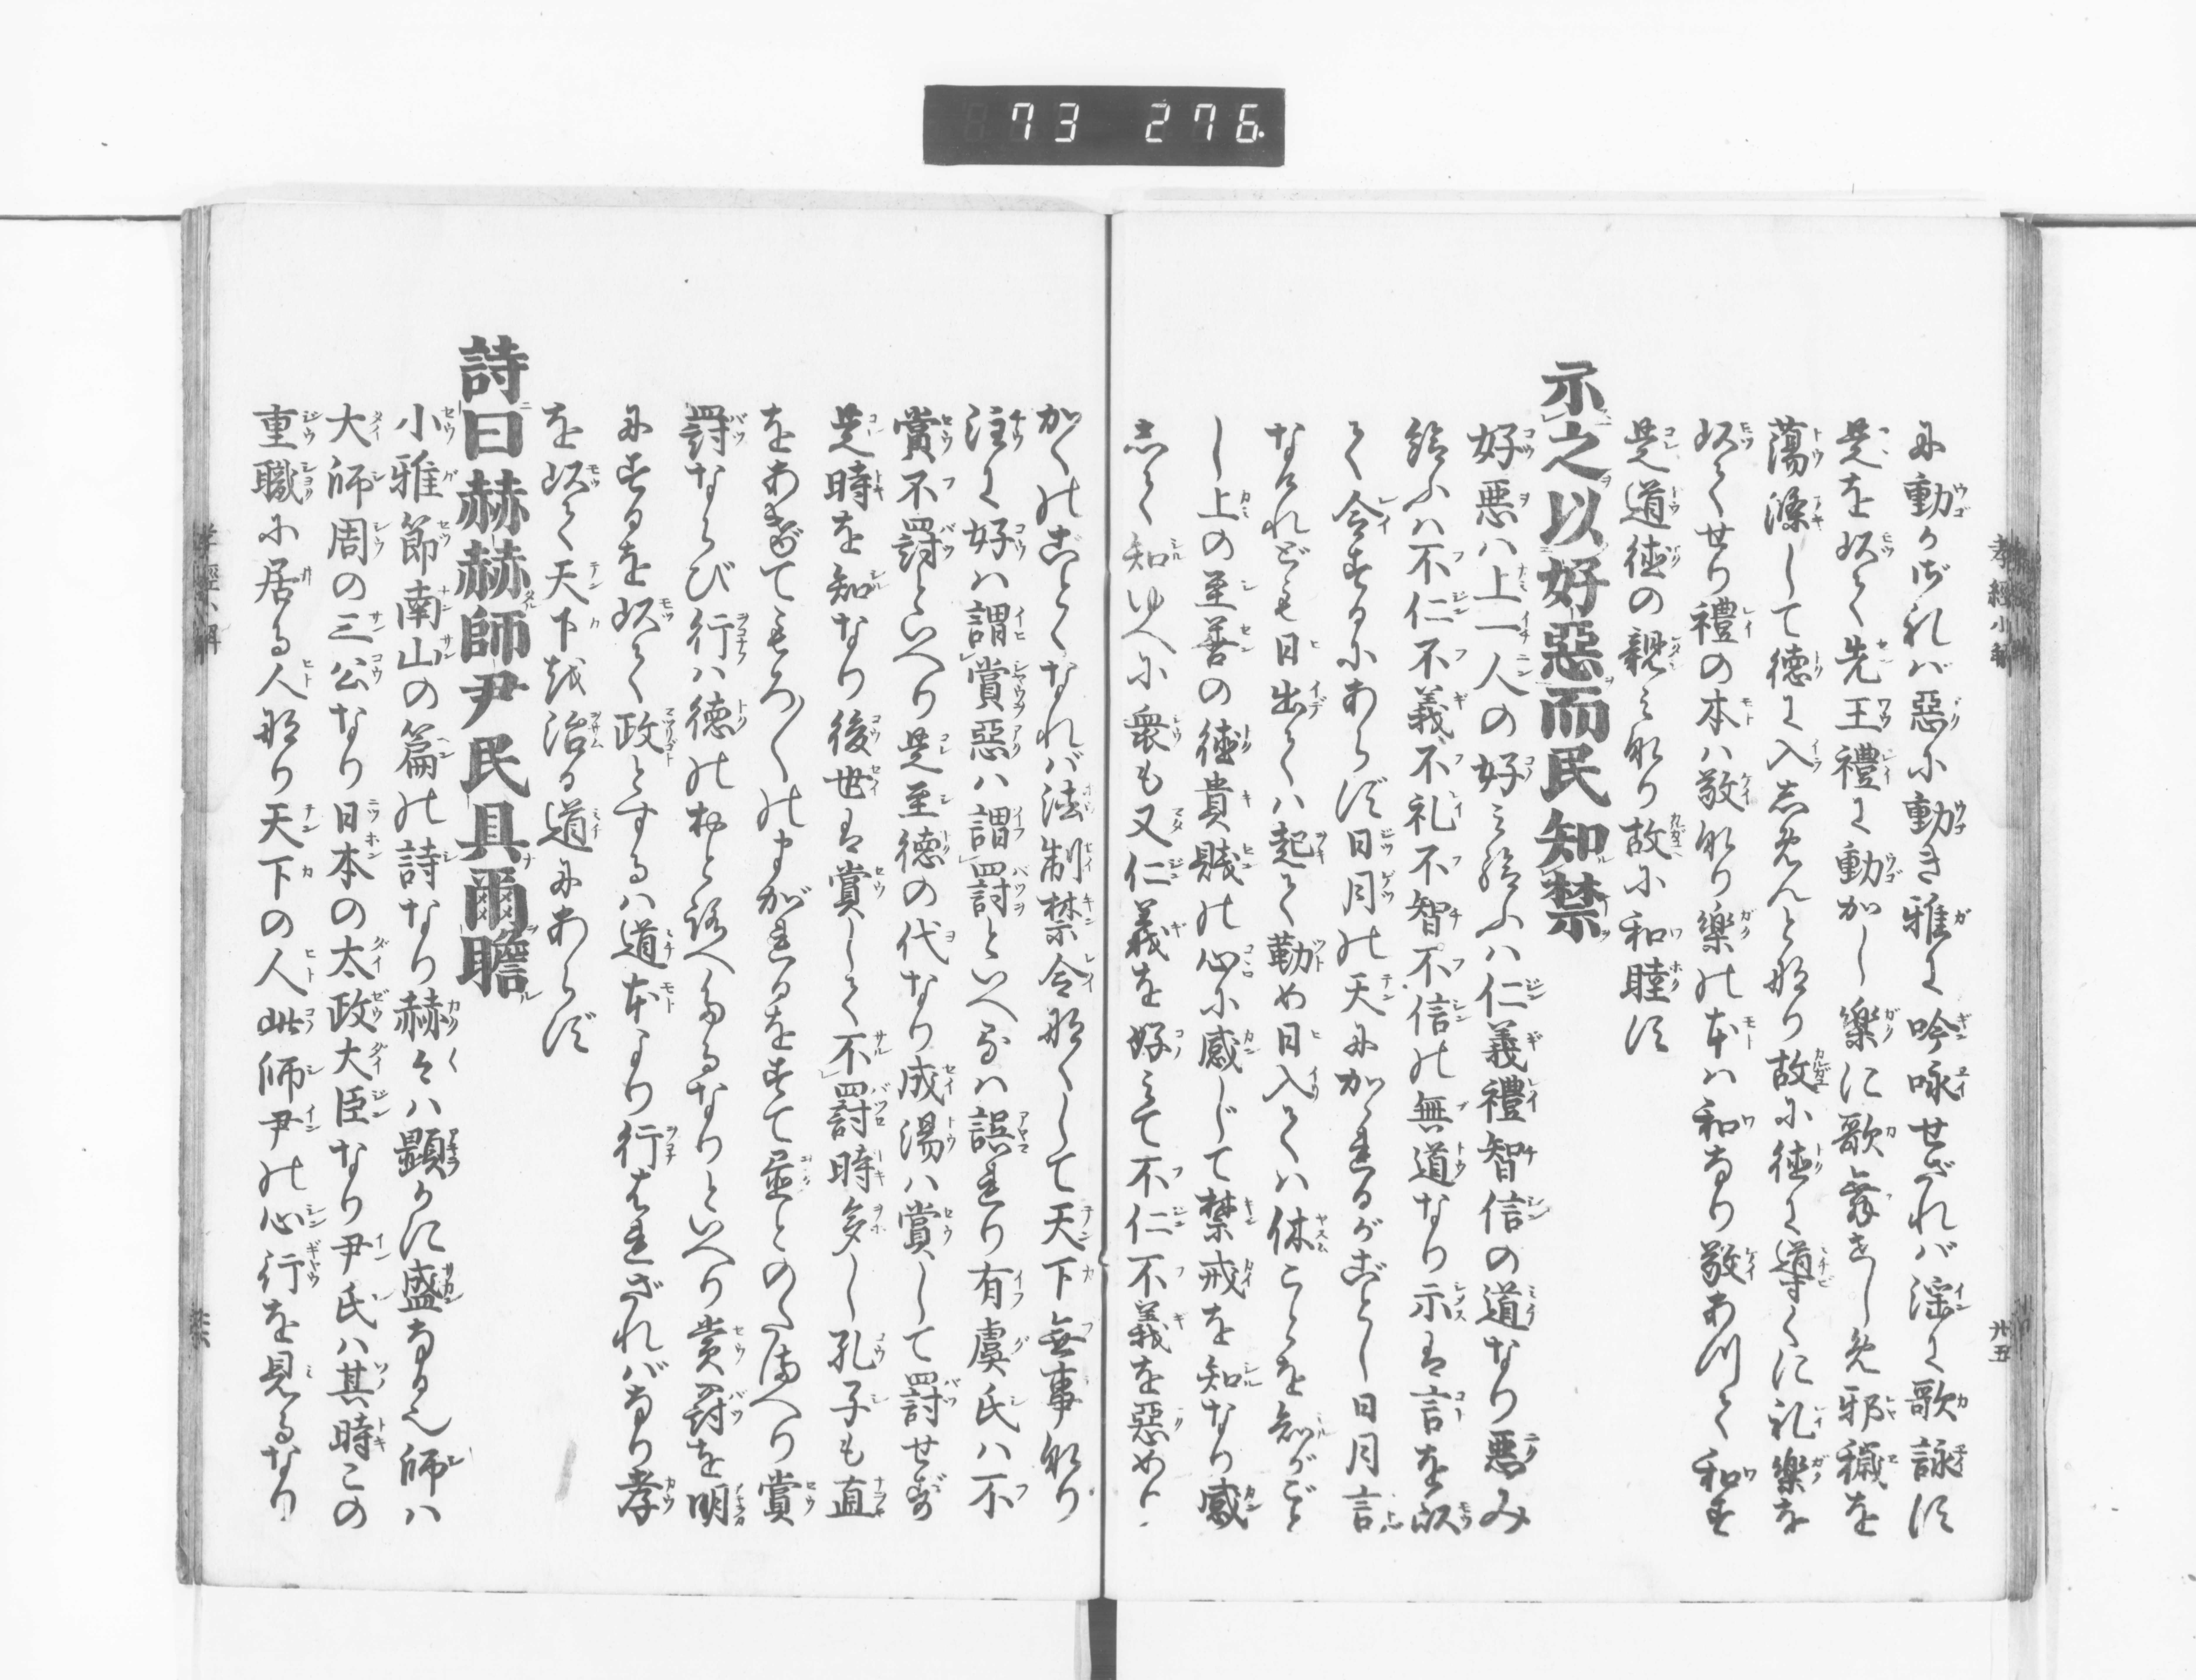 73 276
に動かざれば惡に動き雅に吟咏せざれば淫に歌詠す
是を以て先王禮に動かし樂に歌舞せしめ邪穢を
蕩滌して徳に入しめんとなり故に徳に導くに礼樂を
以てせり禮の本ハ敬なり樂の本ハ和なり敬あつて和す
是道徳の親みなり故に和睦す
示之以好惡而民知禁
好惡ハ上一人の好み給ふハ仁義禮智信の道なり惡み
給ふハ不仁不義不礼不智不信の無道なり示は言を以
て令するにあらず日月の天にかゝるがごとし日月言
なけれども日出てハ起て勤め日入てハ休ことを知がごと
し上の至善の徳貴賤の心に感じて禁戒を知なり感
して知ゆへに衆も又仁義を好みて不仁不義を惡めり
孝經小解 廿五
かくのごとくなれバ法制禁令なくして天下無事なり
注に好ハ謂賞惡ハ謂罰といへるハ誤れり有虞氏ハ不
賞不罰といへり是至徳の代なり成湯ハ賞して罰せず
是時を知なり後世は賞して不罰時多し孔子も直
をあげてもろ〳〵のまがれるをすて置とのたまへり賞
罰ならび行ハ徳のおとろへたるなりといへり賞罰を明
にするを以て政とするハ道本より行はれざればなり孝
を以て天下を治る道にあらず
詩曰赫赫師尹民具爾瞻
小雅節南山の篇の詩なり赫々ハ顕かに盛なる也師ハ
大師周の三公なり日本の太政大臣なり尹氏ハ其時この
重職に居る人なり天下の人此師尹の心行を見るなり
孝經小解